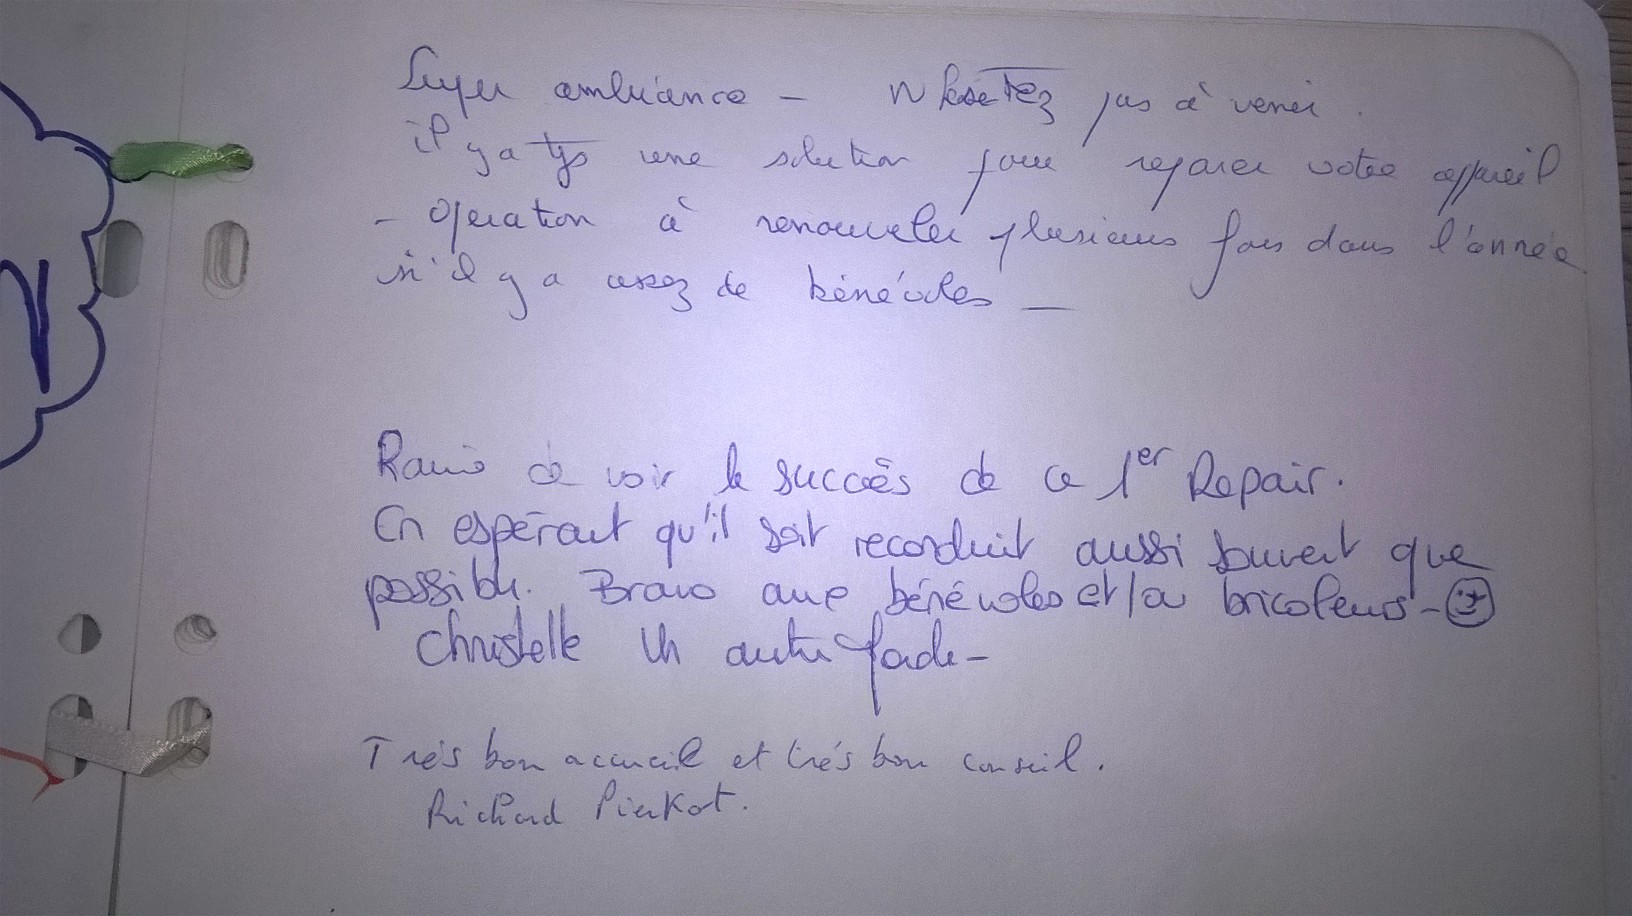 Super ambiance - N'hésitez pas à venir.
il y a tjs une solution pour réparer votre appareil
- Opération à renouveler plusieurs fois dans l'année
s'il y a assez de bénévoles -
Ravie de voir le succès de ce 1er Repair.
En espérant qu'il soit reconduit aussi souvent que
possible. Bravo aux bénévoles et/ou bricoleurs -
Christelle Un autre
Très bon accueil et très bon conseil.
Richard Pierkot.